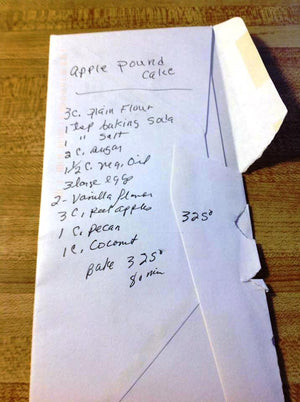 Apple Pound
Cake
3c. Plain Flour
1 tsp baking Soda
1 " Salt
2 C, sugar
1 1/2 C. veg. Oil
3 large eggs
2- Vanilla flavor
3 C, peel apples
1 C, pecan
1 C, Coconut
Bake 325°
80 min
325°